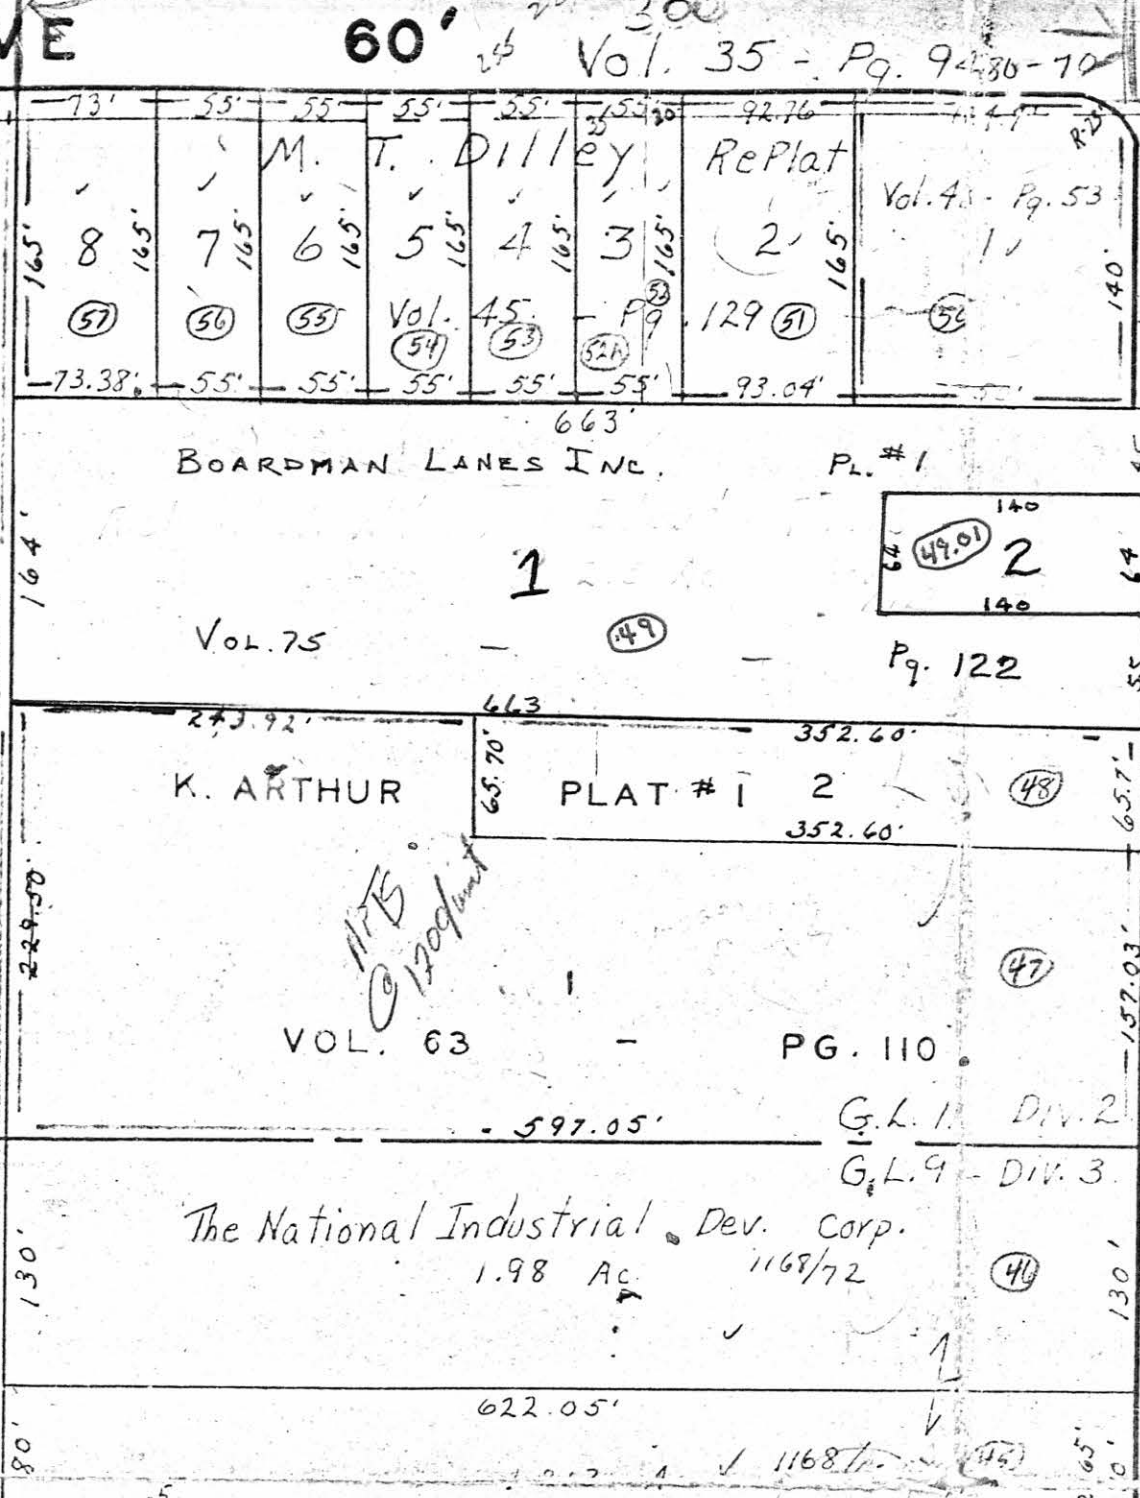 VE 60' 300
Vol. 35 - Pg. 94
73' 55' 55' 55' 55' 55' 92.76
35 30 R-25
M. T. Dilley RePlat
Vol. 4 - Pg. 53
165' 8 165' 7 165' 6 165' 5 165' 4 165' 3 165' 2 165' 1 140'
57 56 55 Vol. 45 - Pg. 129 51
54 53 52A 52
73.38' 55' 55' 55' 55' 55' 93.04'
663'
BOARDMAN LANES INC. PL. #1
140
164' 1 64 49.01 2 64
140
VOL. 75 - 49 - Pg. 122 55
663
243.92' 352.60'
K. ARTHUR 65.70' PLAT #1 2 48 65.7'
352.60'
229.50'
@ 1200/unit
1 47 157.03'
VOL. 63 - PG. 110
597.05' G.L. 1 Div. 2
G.L. 9 - Div. 3
The National Industrial Dev. Corp.
130' 1.98 Ac. 1168/72 46 130'
622.05'
80' 1168/ 45 65'